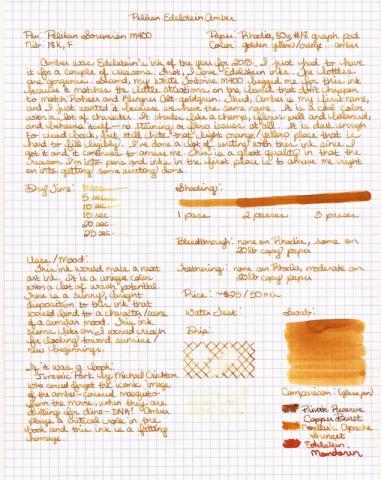 Pelikan Edelstein Amber
Pen: Pelikan Souverän m400
Nib: 18k, F
Paper: Rhodia, 80g, #18 graph pad
Color: golden yellow/orange... amber
Amber was Edelstein's ink of the year for 2013. I just had to have
it for a couple of reasons. First, I love Edelstein inks. The bottles
are gorgeous. Second, my White Tortoise M400 begged me for this ink
because it matches the little striations on the barrel that don't happen
to match Rohrer and Klingner Alt-goldgrun. Third, Amber is my first name,
and I just wanted it because we have the same name. It is a cool color
with a lot of character. It shades like a champ, flows well and balanced,
and behaves itself - no staining or flow issues at all. It is dark enough
to read back, but still flirts that light orange/yellow place that is
hard to fill legibly. I've done a lot of writing with this ink since I
got it and it continues to amuse me. This is a great quality in that the
reason I'm into pens and inks in the first place is to amuse me right
on into getting some writing done.
Dry Time: 1 sec
5 sec
10 sec
15 sec
20 sec
25 sec
Shading:
1 pass 2 passes 3 passes
Bleedthrough: none on Rhodia, some on
20lb copy paper
Feathering: none on Rhodia, moderate on
20lb copy paper
Price: ~$25/50mL
Uses/Mood:
This ink would make a neat
art ink. It is a unique color
with a lot of wash potential.
There is a sunny, bright
disposition to this ink that
would lend to a character/scene
of a similar mood. This ink
seems like one I would reach
for looking toward sunrises/
new beginnings.
Water Test:
Drip:
Swab:
If it was a book:
Jurassic Park by Michael Crichton.
Who could forget the iconic image
of the amber-covered mosquito
from the movie, when they are
drilling for dino-DNA? Amber
plays a critical role in the
book and this ink is a fitting
homage.
Comparison: (glass pen)
Private Reserve
Copper Burst
Noodler's Apache
Sunset
Edelstein
Mandarin